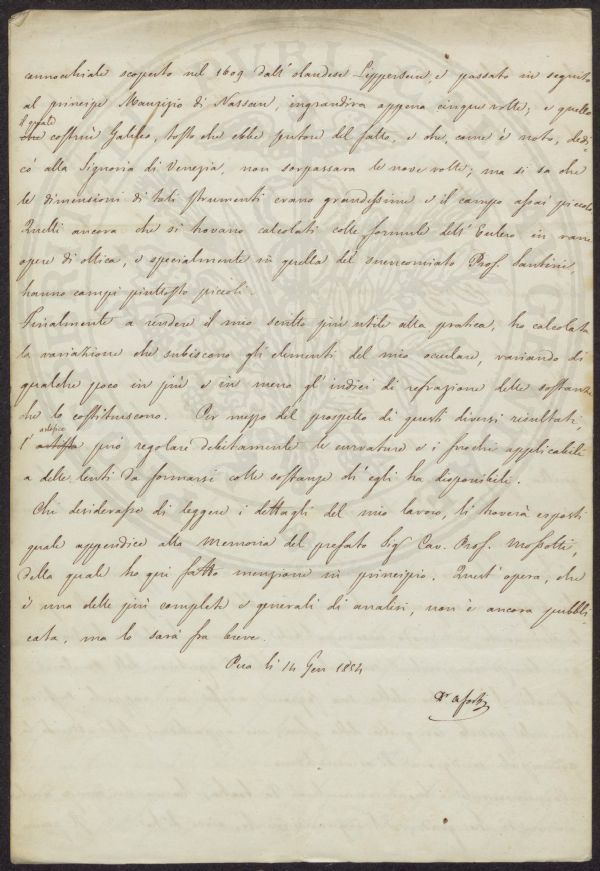 cannocchiale scoperto nel 1609 dall' olandese Lippersein, e passato in seguito
al principe Maurizio di Nassau, ingrandiva appena cinque volte; e quello
il quale
che costruì Galileo, tosto che ebbe sentore del fatto, e che, come è noto, dedi
cò alla Signoria di Venezia, non sorpassava le nove volte; ma si sa che
le dimensioni di tali strumenti erano grandissime e il campo assai piccolo
Quelli ancora che si trovano calcolati colle formule dell' Eulero in varie
opere di ottica, e specialmente in quella del suencomiato Prof. Santini
hanno campi piuttosto piccoli.
Finalmente a rendere il mio scritto più utile alla pratica, ho calcolata
la variazione che subiscono gli elementi del mio oculare, variando di
qualche poco in più e in meno gl' indici di refrazione delle sostanze
che lo costituiscono. Per mezzo del prospetto di questi diversi resultati,
artefice
l' artista può regolare debitamente le curvature e i fuochi applicabili
a delle lenti da formarsi colle sostanze ch' egli ha disponibili.
Chi desiderasse di leggere i dettagli del mio lavoro, li troverà esposti
quale appendice alla Memoria del prefato Sigr Cav. Prof. Mossotti,
della quale ho qui fatto menzione in principio. Quest' opera, che
è una delle più complete e generali di analisi, non è ancora pubbli
cata, ma lo sarà fra breve.
Pisa li 14 Gen 1854
Dr A Forti